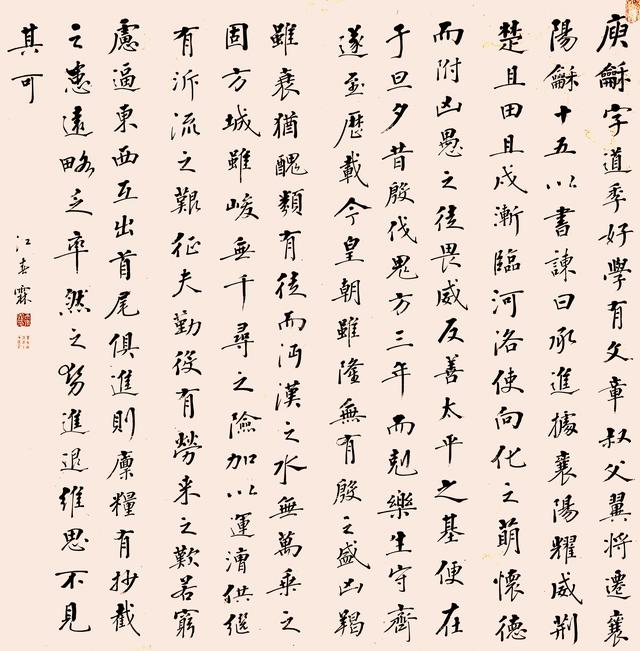 庾龢字道季好學有文章叔父翼將遷襄
陽龢十五以書諫曰承進據襄陽耀威荊
楚且田且戍漸臨河洛使向化之萌懷德
而附凶愚之徒畏威反善太平之基便在
于旦夕昔殷伐鬼方三年而剋樂生守齊
遂至歷載今皇朝雖隆無有殷之盛凶羯
雖衰猶醜類有徒而沔漢之水無萬乘之
固方城雖峻無千尋之險加以運漕供繼
有泝流之艱征夫勤役有勞来之歎若窮
慮逼東西互出首尾俱進則廩糧有抄截
之患遠略乏率然之勢進退維思不見
其可
江春霖